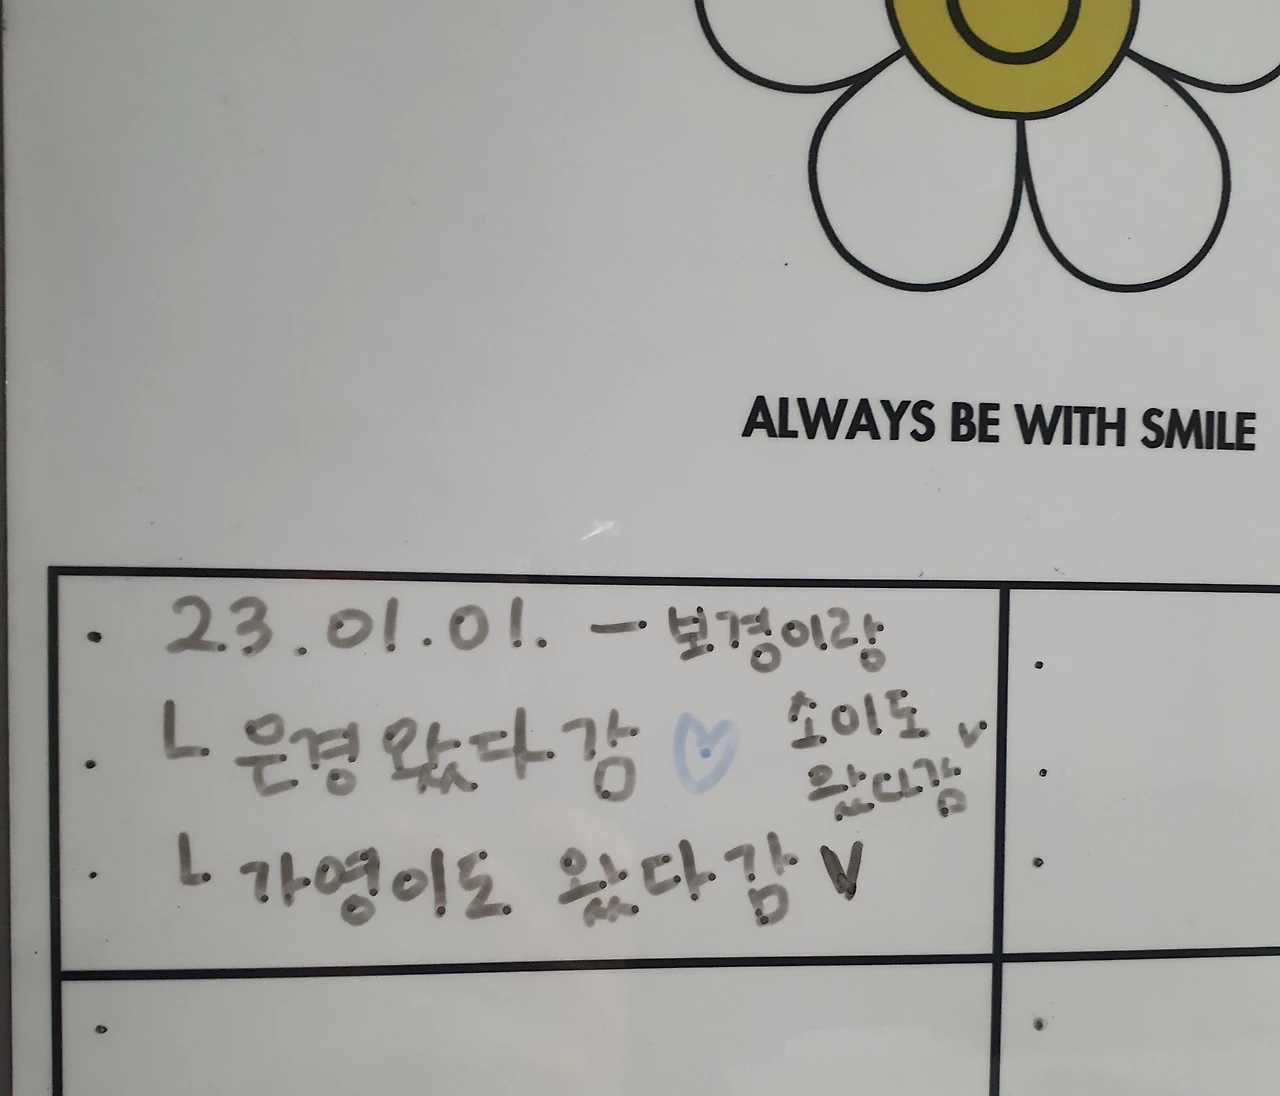 ALWAYS BE WITH SMILE
· 23.01.01. - 보경이랑
· ㄴ 은경 왔다감 ♡
소이도
왔다감 v
· ㄴ 가영이도 왔다감 V